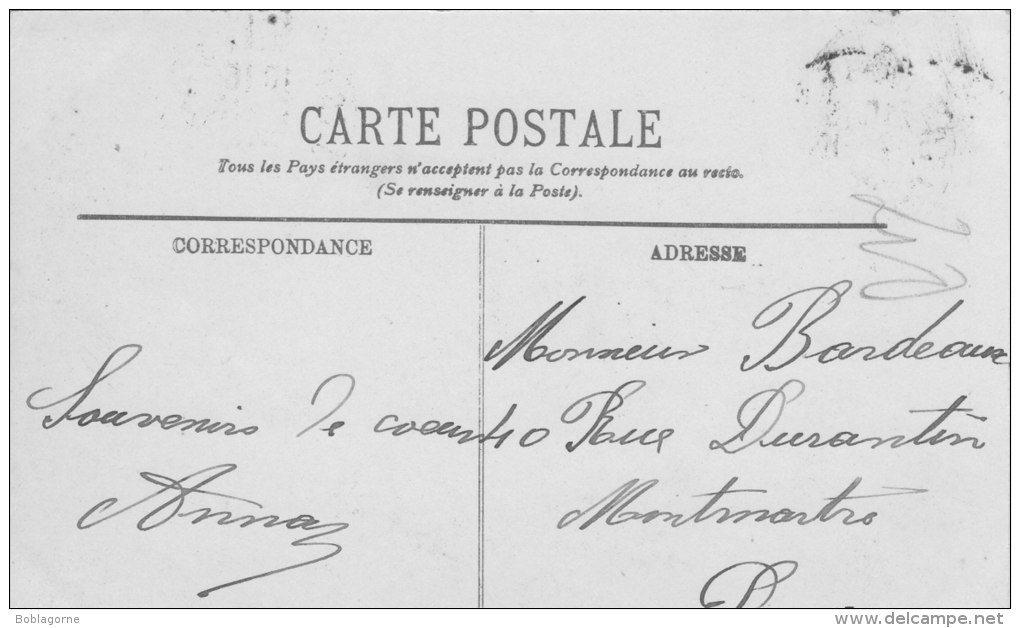 CARTE POSTALE
Tous les Pays étrangers n'acceptent pas la Correspondance au recto.
(Se renseigner à la Poste).
CORRESPONDANCE
Souvenirs de coeur
Anna
ADRESSE
Monsieur Bardeaux
40 Rue Durantin
Montmartre
Boblagorne
delcampe.net